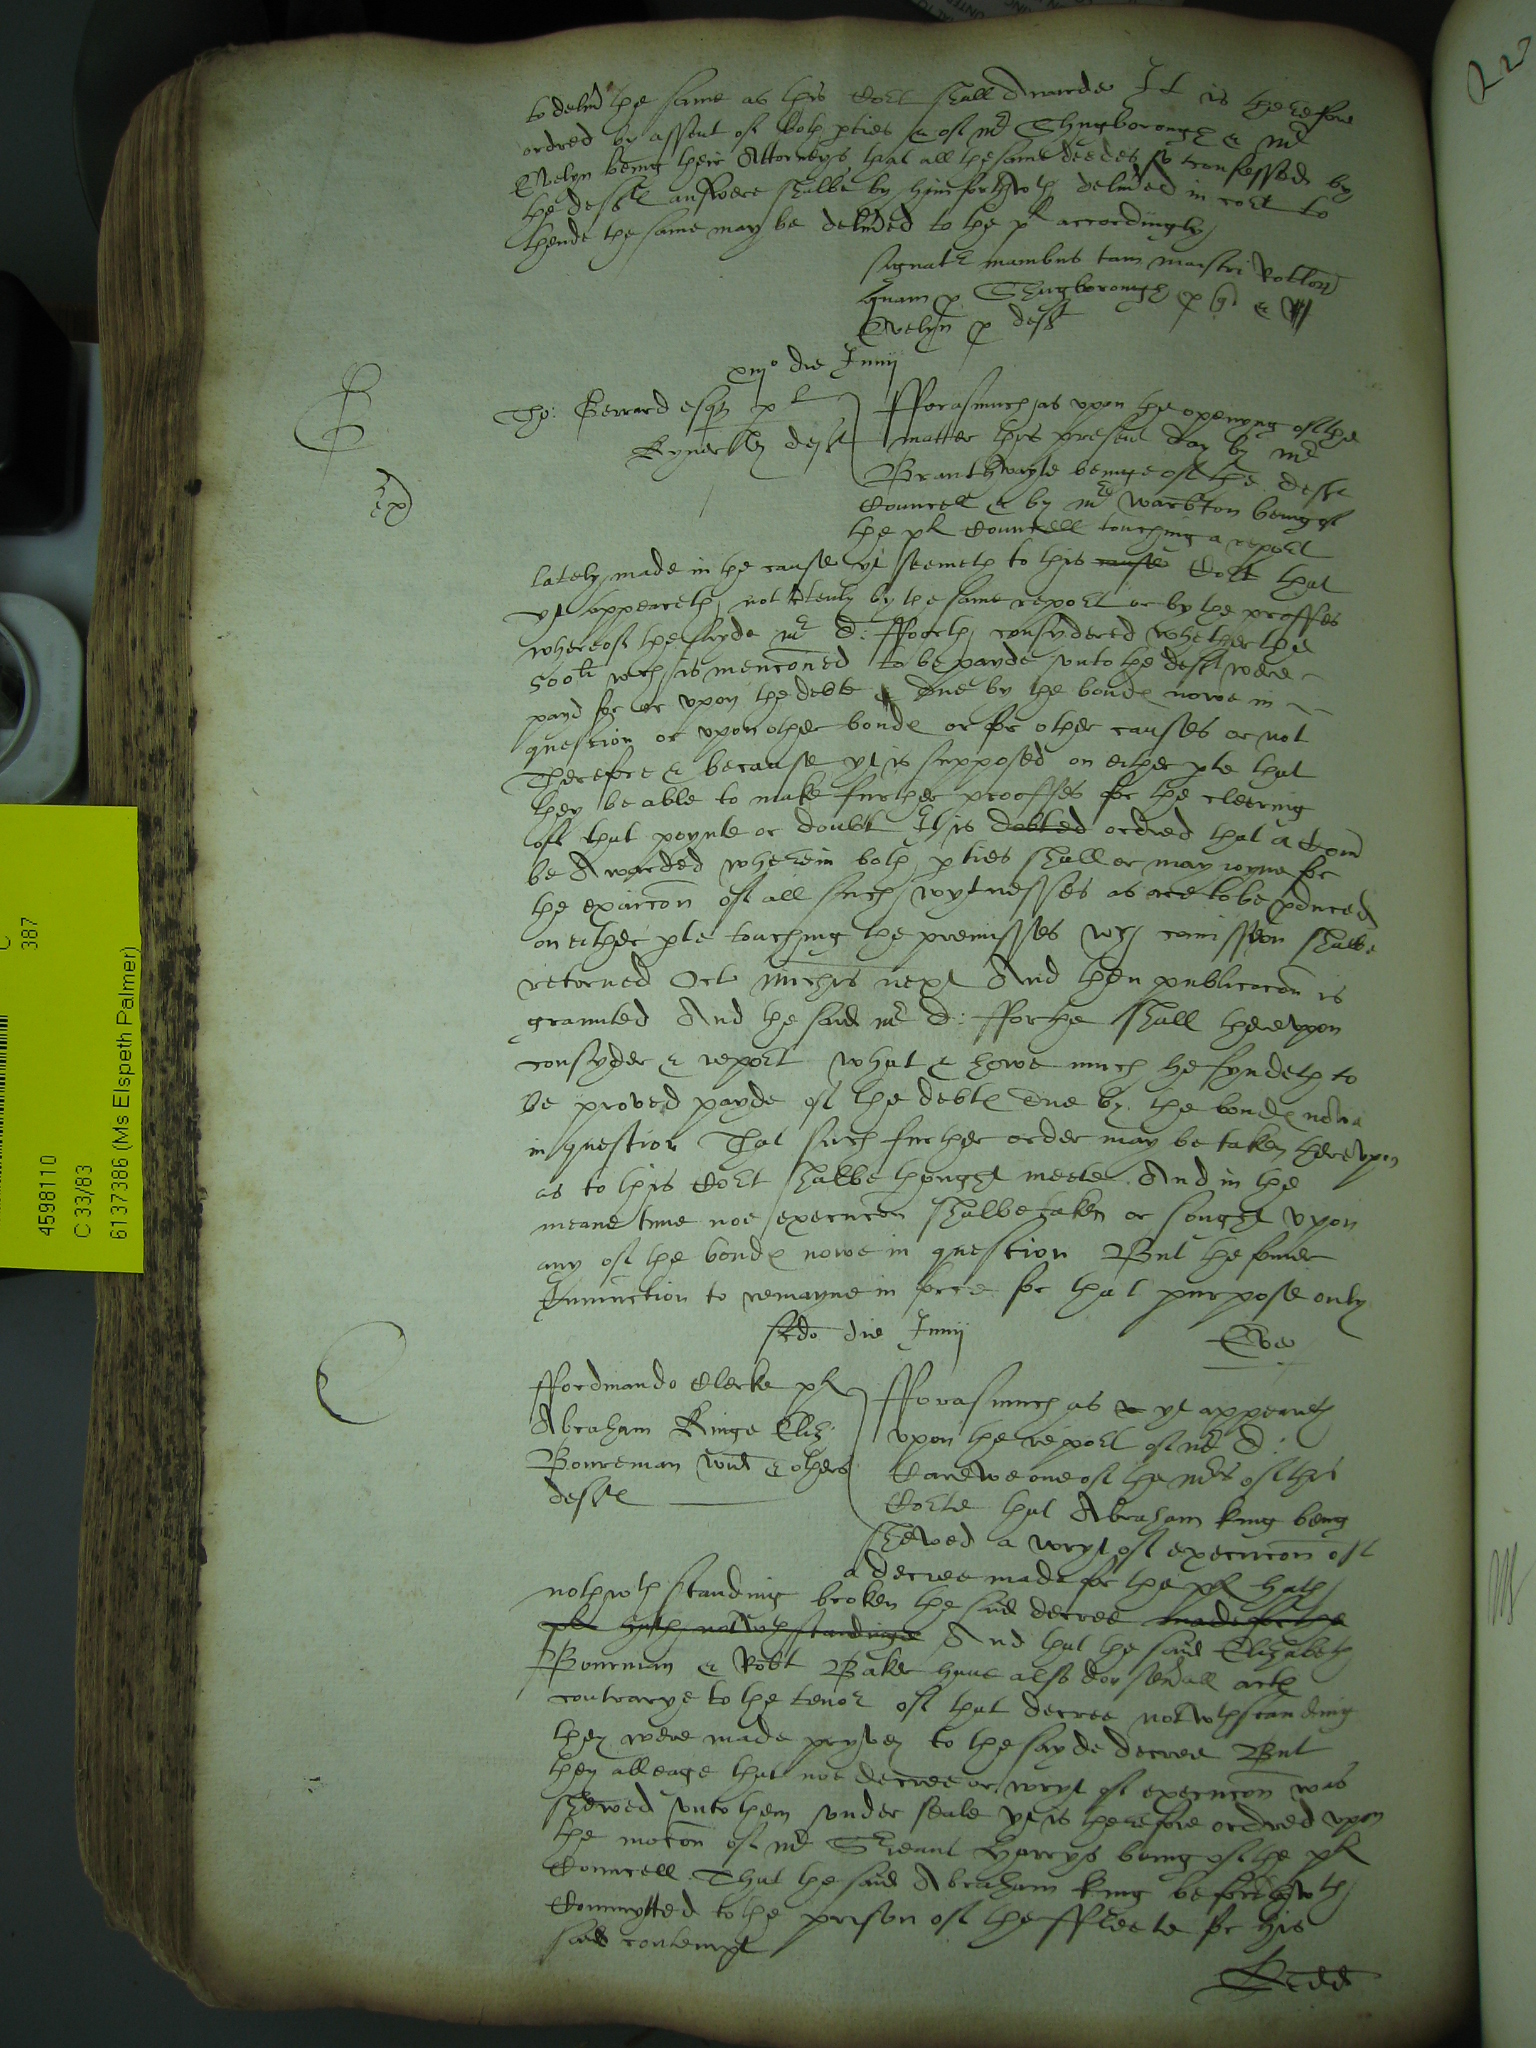 to deliv͛ the same as this Co͛t shall Awarde It is therefore
ordred by assent of both p̱ties & of m͛ Shugborough & m͛
Evelyn being their Attorneys that all the same deedes so confessed by
the def͛ answere shalbe by him forthwth deliv͛ed in co͛t to
thende the same may be deliv͛ed to the pl accordingly
signat͛ manibus tam maistri Rotlor͛
quam p̱ Shugborough p̱ q͛ &
Evelyn p̱ def͛
xiijo die Junij
Tho: Gerrard esq͛ pl
Kynersley deft
fforasmuch as upon the openyng of the
matter this present day by m͛
Branthwayte beinge of the deft
Councell & by m͛ Warbton being of
the pl Councell touching a repo͛t
lately made in the cause yt seemeth to this cause Co͛t that
yt appeareth not cleerly by the same repo͛t or by the prooffes
whereof the sayde m͛ D: fforth consydered whether the
500li wch is menc̃oned to be payde unto the deft were
payd for or upon the debte & due by the bondℯ nowe in
question or upon other bondℯ or for other causes or not
Therefore & because yt is supposed on either p̱te that
they be able to make further prooffes for the cleering
of that poynte or doubt It is debted ordred that a Com̃
be Awarded wherein both p̱ties shall or may ioyne for
the exaic̃on of all such wytnesses as are to be p̱duced
on either p̱te touching the premisses wch com̃ission shalbe
retorned Octb michis next And then publicac̃on is
graunted And the said m͛ D: fforthe shall hereupon
consyder & repo͛t what & howe much he fyndeth to
be proved payde of the debtℯ due by the bondℯ nowe
in question That such further order may be taken hereupon
as to this Co͛t shalbe thought meete And in the
meane tyme noe execuc̃on shalbe taken or sought upon
any of the bondℯ nowe in question But the former
Iniunction to remayne in force for that purpose only
scdo die Junij
ffordinando Clerke pl
Abraham Kinge Eliz:
Boureman wid & others
deftℯ
fforasmuch as yt appeareth
upon the repo͛t of m͛ D:
Carewe one of the m͛s of this
Co͛te that Abraham King being
shewed a wryt of execuc̃on of
a decree made for the pl hath
nothwthstanding broken the said decree made for the
pl hath notwthstandinge And that the said Elizabeth
Bourman & Robt Baker have also don sev͛all actℯ
contrarye to the teno͛ of that decree notwthstanding
they were made pryvey to the sayde decree But
they alleage that noe decree or wryt of execuc̃on was
shewed unto them under seale yt is therefore ordred upon
the moc̃on of m͛ S͛ieant Harrys being of the pl
Councell That the said Abraham King be forthwth
Commytted to the prison of the ffleete for his
said contempt
4598110
C 33/83
6137386 (Ms Elspeth Palmer)
387